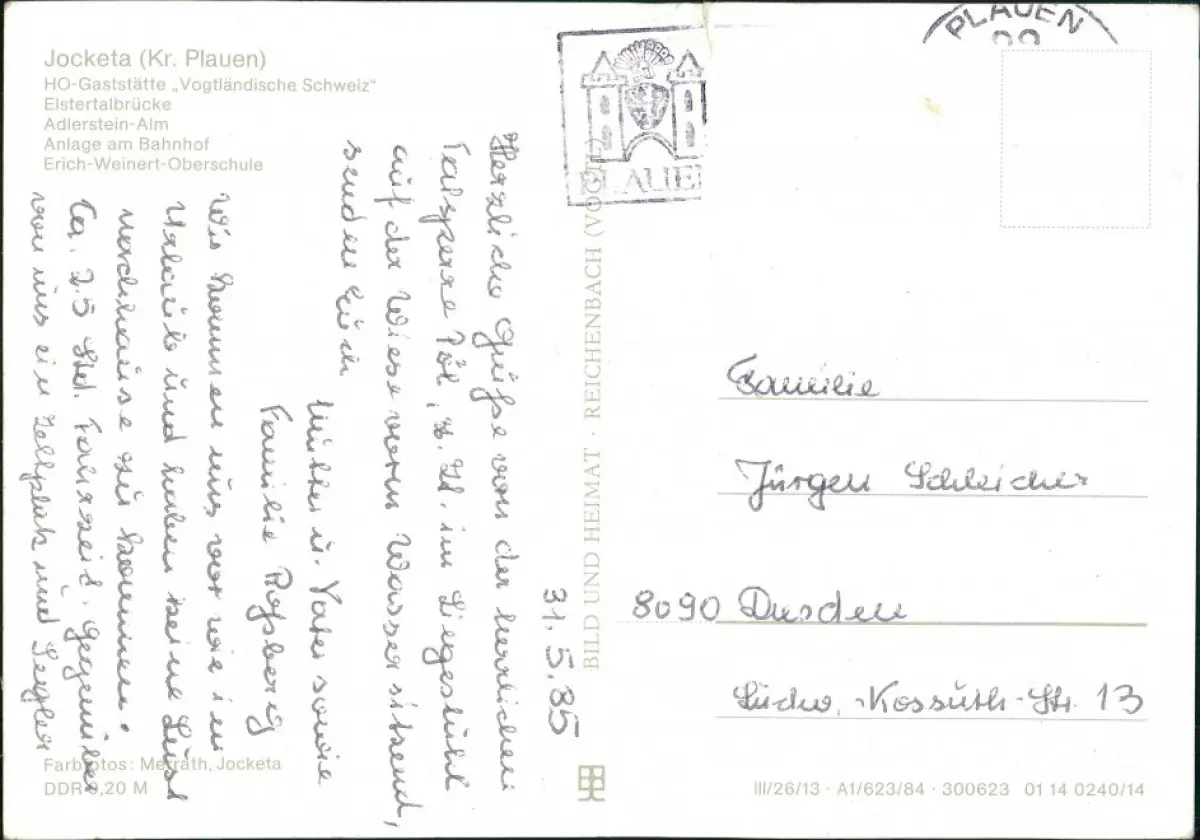 Jocketa (Kr. Plauen)
HO-Gaststätte „Vogtländische Schweiz"
Elstertalbrücke
Adlerstein-Alm
Anlage am Bahnhof
Erich-Weinert-Oberschule
PLAUEN
PLAUE
31.5.85
Herzliche Grüße von der herrlichen
Talsperre Pöl, z. Zt. im Liegestuhl
auf der Wiese vorm Wasser sitzend,
senden Euch
Mutti u. Vater sowie
Familie Roßberg
Wir kommen uns vor wie im
Urlaub und haben keine Lust
nachhause zu kommen.
Ca. 2.5 Std. Fahrzeit. Gegenüber
von uns ein Zeltplatz und Segler
BILD UND HEIMAT · REICHENBACH (VOGTL)
Familie
Jürgen Schleicher
8090 Dresden
Kossuth-Str. 13
Farbfotos: Metrath, Jocketa
DDR 0,20 M
III/26/13 · A1/623/84 · 300623 01 14 0240/14